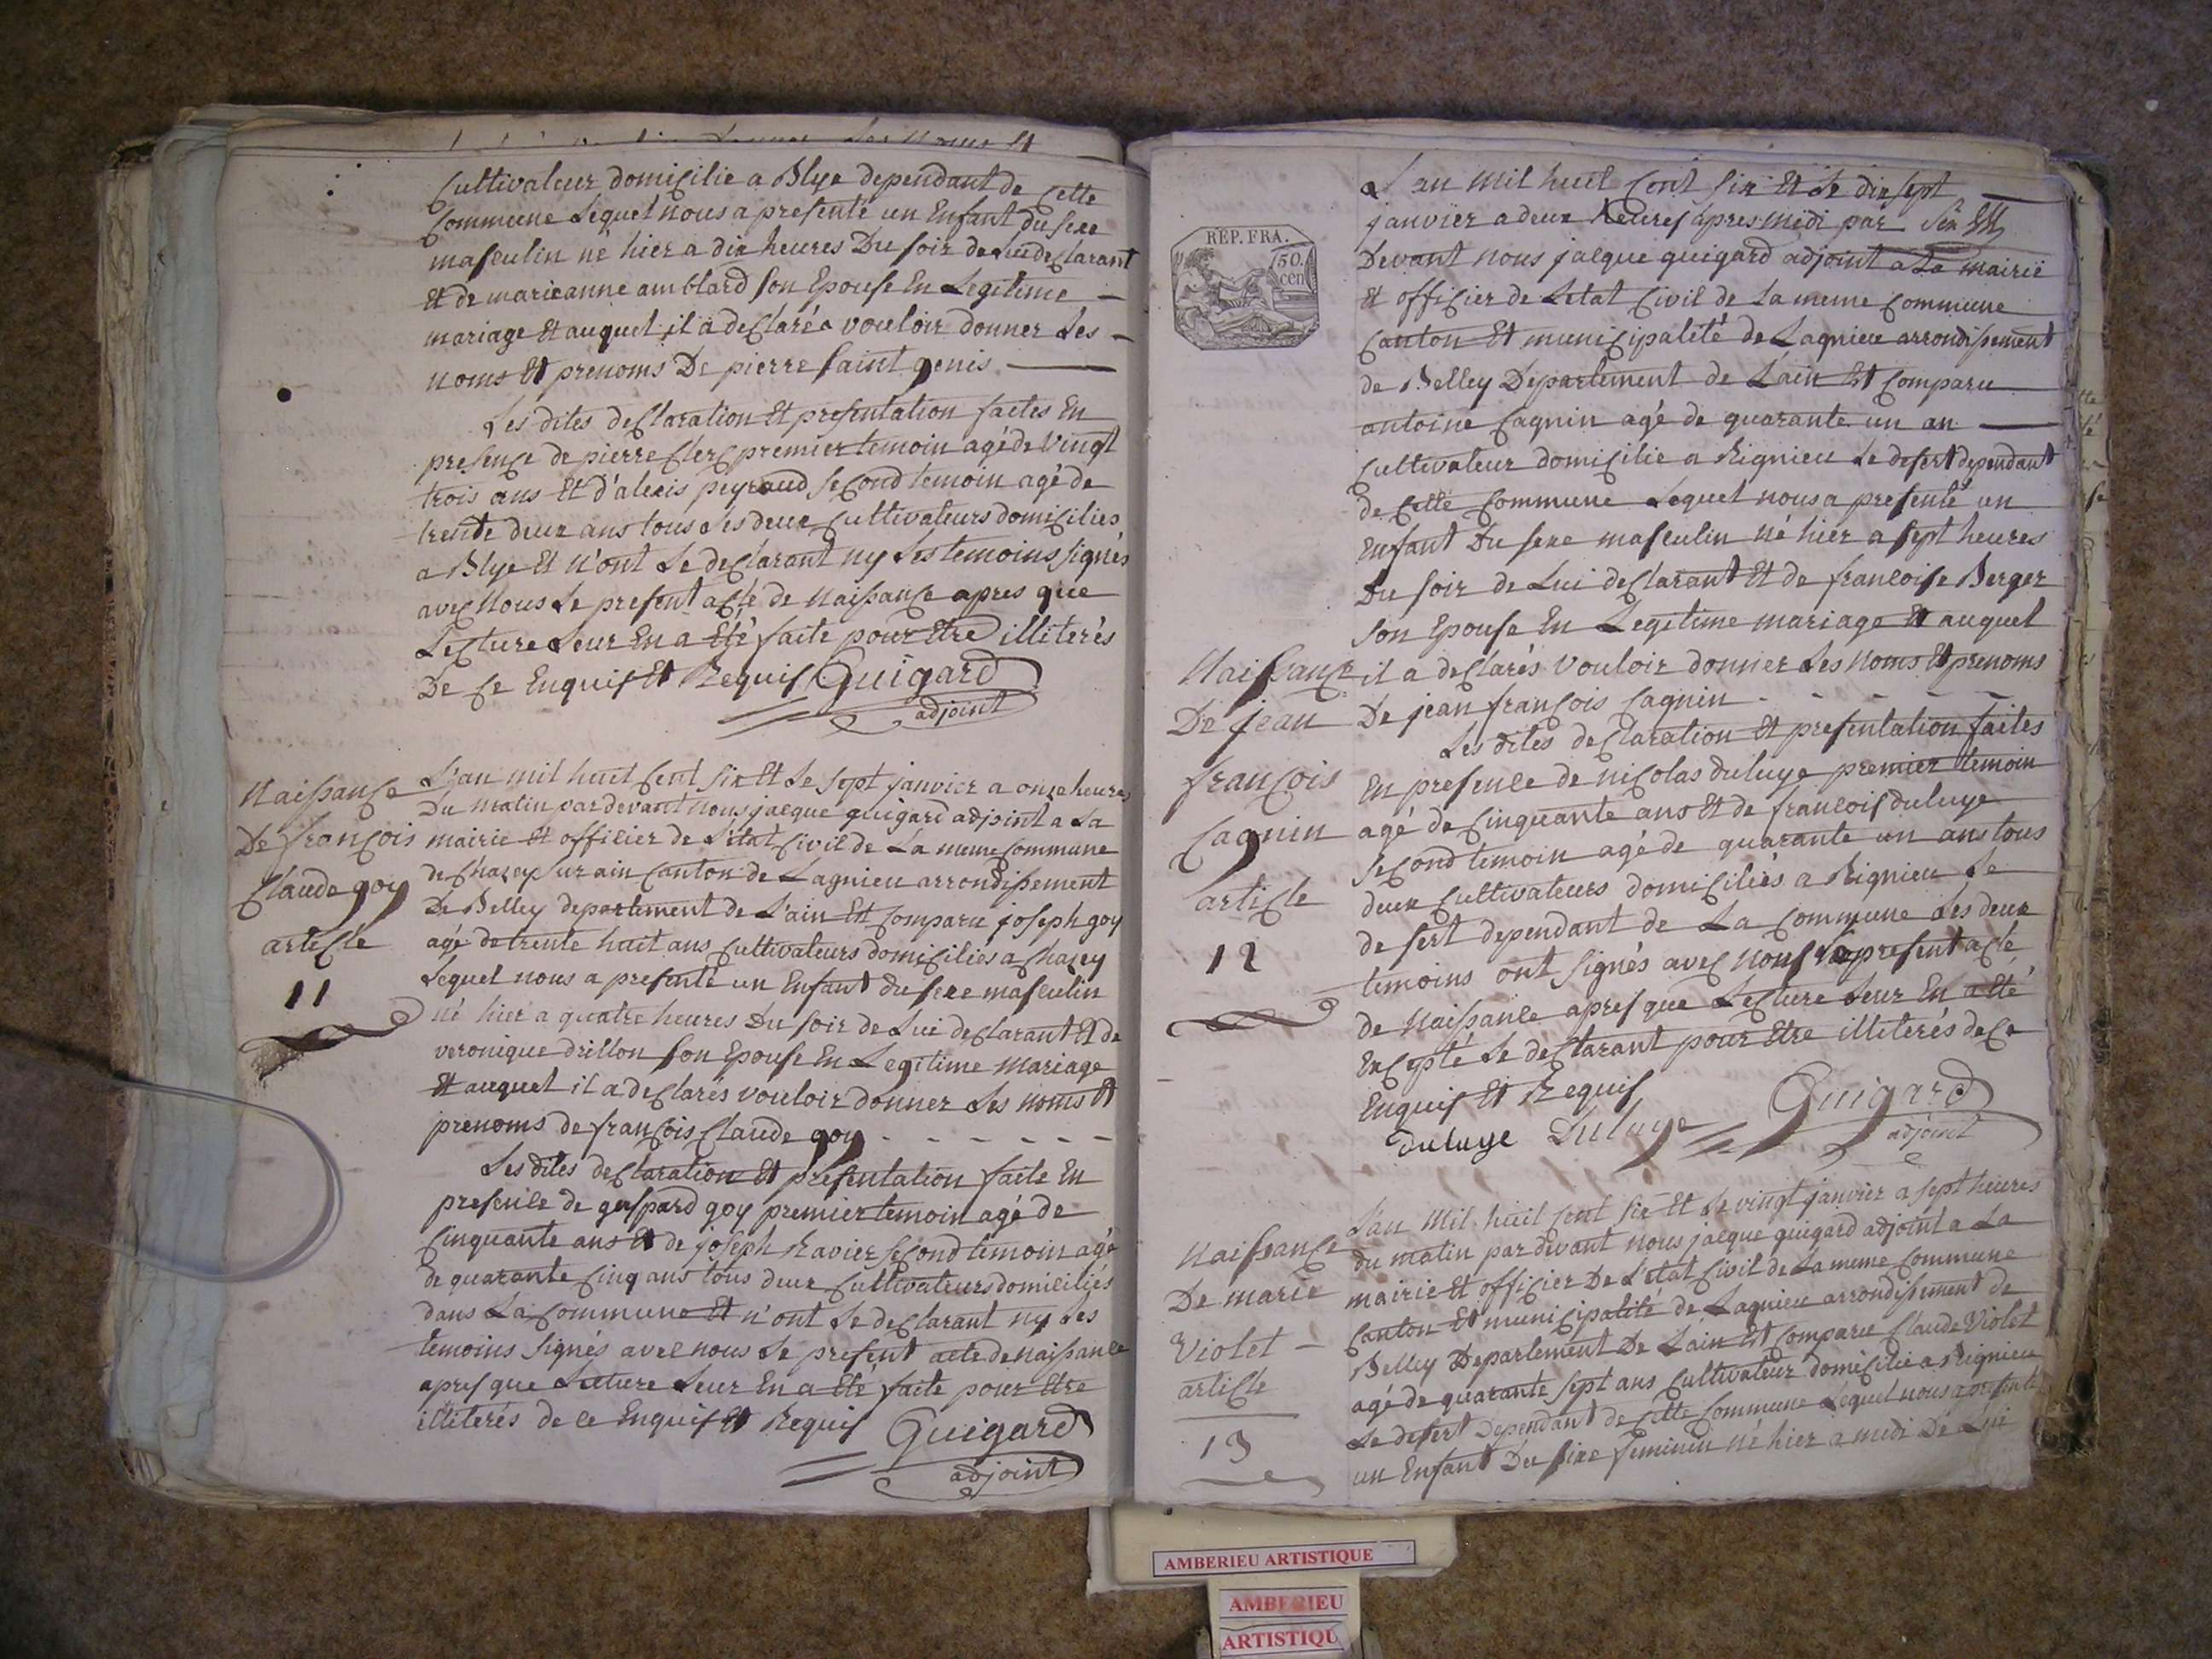 Cultivateur domicilié a Blye dependant de Cette
Commune Lequel nous a presenté un Enfant du sexe
masculin né hier a dix heures Du soir de Lui declarant
Et de marieanne amblard son Epouse En Legitime —
mariage Et auquel il a declaré a vouloir donner Les —
noms Et prenoms De pierre saint genis —
Les dites declaration Et presentation faites En
presence de pierre Clerc premier temoin agé de vingt
trois ans Et d'alexis peyraud second temoin agé de
trente deux ans tous Les deux Cultivateurs domiciliés
a Blye Et n'ont Le declarant ny Les temoins signés
avec Nous Le present acte de Naissance apres que
Lecture Leur En a Eté faite pour Etre illiterés
De Ce Enquis Et Requis Guigard
adjoint
Naissance
De françois
Claude goy
article
11
L'an mil huit Cent six Et Le sept janvier a onze heures
Du matin par devant nous jacque guigard adjoint a La
mairie Et officier de L'état Civil de La meme Commune
de Chazey sur ain Canton de Lagnieu arrondissement
De Belley departement de L'ain Est Comparu joseph goy
agé de trente huit ans Cultivateurs domiciliés a Chazey
Lequel nous a presenté un Enfant du sexe masculin
né hier a quatre heures Du soir de Lui declarant Et de
veronique drillon son Epouse En Legitime Mariage
Et auquel il a declarés vouloir donner Les noms Et
prenoms de françois Claude goy - - - - - -
Les dites declaration Et presentation faite En
presence de gaspard goy premier temoin agé de
Cinquante ans Et de joseph Ravier second temoin agé
de quarante Cinq ans tous deux Cultivateurs domiciliés
dans La Commune Et n'ont Le declarant ny Les
temoins signés avec nous Le present acte de naissance
apres que Lecture Leur En a Eté faite pour Etre
illiterés de ce Enquis Et Requis Guigard
adjoint
REP. FRA.
50.
cen
L'an mil huit Cent six Et Le dix sept
janvier a deux heures apres midi par
Devant nous jacque guigard adjoint a La mairie
Et officier de L'etat Civil de La meme Commune
Canton Et municipalité de Lagnieu arrondissement
de Belley Departement de L'ain Est Comparu
antoine Cagnin agé de quarante un an —
Cultivateur domicilié a Rignieu Le desert dependant
de Cette Commune Lequel nous a presenté un
Enfant Du sexe masculin né hier a sept heures
Du soir de Lui declarant Et de francoise Berger
son Epouse En Legitime mariage Et auquel
il a declarés vouloir donner Les Noms Et prenoms
De jean françois Cagnin - - - - -
Naissance
De jean
françois
Cagnin
article
12
Les dites declaration Et presentation faites
En presence de nicolas duluye premier temoin
agé de Cinquante ans Et de francois duluye
second temoin agé de quarante un ans tous
deux Cultivateurs domiciliés a Rignieu Le
desert dependant de La Commune Les deux
temoins ont signés avec Nous Le present acte
de Naissance apres que Lecture Leur En a Eté
Excepté Le declarant pour Etre illiterés de Ce
Enquis Et Requis
duluye Duluye Guigard
adjoint
Naissance
De marie
Violet —
article
13
L'an Mil huit Cent six Et Le vingt janvier a sept heures
du matin par devant nous jacque guigard adjoint a La
mairie Et officier De L'etat Civil de La meme Commune
Canton Et municipalité de Lagnieu arrondissement de
Belley Departement De L'ain Est Comparu Claude Violet
agé de quarante sept ans Cultivateur domicilié a Rignieu
Le desert Dependant de Cette Commune Lequel nous a presenté
un Enfant Du sexe feminin né hier a midi De Lui
AMBERIEU ARTISTIQUE
AMBERIEU
ARTISTIQU